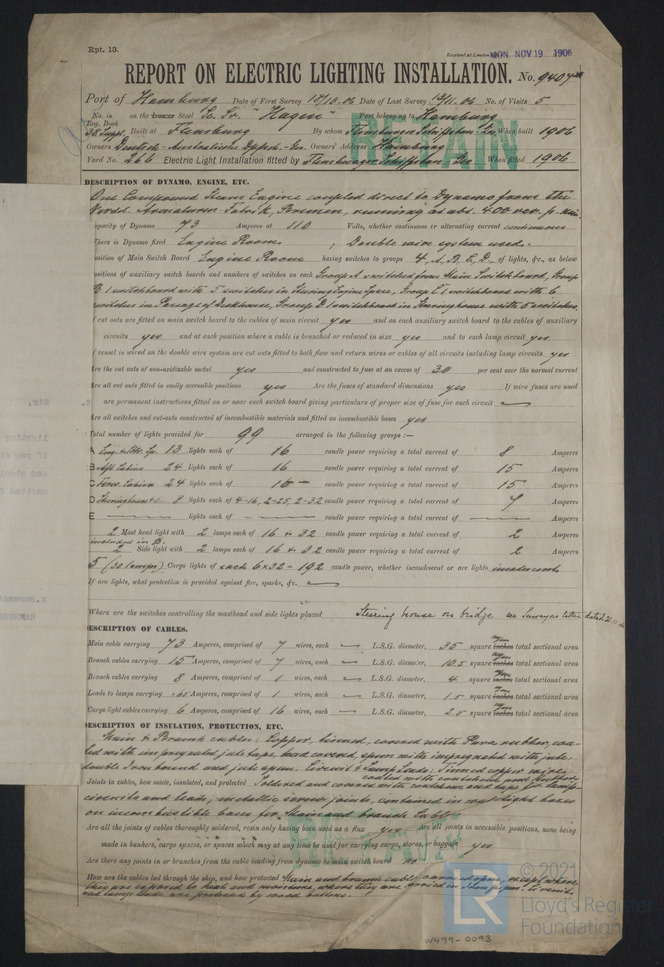 Rpt. 13.
Received at London MON NOV 19 1906
REPORT ON ELECTRIC LIGHTING INSTALLATION. No. 9407
Port of Hamburg Date of First Survey 18/10.06 Date of Last Survey /11.06 No. of Visits 5
No. in Reg. Book on the Steel Sc. Sr. "Hagen" Port belonging to Hamburg
38 Suppl. Built at Flensburg By whom Flensburger Schiffsbau Ges. When built 1906
Owners Deutsch-Australische Dampfsch.-Ges. Owners' Address Hamburg
Yard No. 266 Electric Light Installation fitted by Flensburger Schiffsbau Ges. When fitted 1906
RETAIN
DESCRIPTION OF DYNAMO, ENGINE, ETC.
One Compound Steam Engine coupled direct to Dynamo from the
Nordd. Armaturen-Fabrik, Bremen, running at abt. 400 rev. p. Min.
apacity of Dynamo 73 Amperes at 110 Volts, whether continuous or alternating current continuous
here is Dynamo fixed Engine Room; Double wire system used.
osition of Main Switch Board Engine Room having switches to groups 4, A, B, C, D, of lights, &c., as below
ositions of auxiliary switch boards and numbers of switches on each Group A switched from Main Switchboard, Group
B 1 switchboard with 5 switches in Steering Engine Space, Group C 1 switchboard with 6
switches in Passage of Deckhouse, Group D 1 switchboard in Steeringhouse with 5 switches.
f cut outs are fitted on main switch board to the cables of main circuit yes and on each auxiliary switch board to the cables of auxiliary
circuits yes and at each position where a cable is branched or reduced in size yes and to each lamp circuit yes
f vessel is wired on the double wire system are cut outs fitted to both flow and return wires or cables of all circuits including lamp circuits yes
Are the cut outs of non-oxidizable metal yes and constructed to fuse at an excess of 30 per cent over the normal current
Are all cut outs fitted in easily accessible positions yes Are the fuses of standard dimensions yes If wire fuses are used
are permanent instructions fitted on or near each switch board giving particulars of proper size of fuse for each circuit
Are all switches and cut-outs constructed of incombustible materials and fitted on incombustible bases yes
Total number of lights provided for 99 arranged in the following groups :—
A 13 lights each of 16 candle power requiring a total current of 8 Amperes
B Aft Cabins 24 lights each of 16 candle power requiring a total current of 15 Amperes
C Forw. Cabins 24 lights each of 16 candle power requiring a total current of 15 Amperes
D Steeringhouse &c. 8 lights each of 4-16, 2-25, 2-32 candle power requiring a total current of 7 Amperes
E lights each of candle power requiring a total current of Amperes
2 Mast head light with 2 lamps each of 16 + 32 candle power requiring a total current of 2 Amperes
included in D.
2 Side light with 2 lamps each of 16 + 32 candle power requiring a total current of 2 Amperes
5 (30 lamps) Cargo lights of each 6 x 32 = 192 candle power, whether incandescent or arc lights incandescent
If arc lights, what protection is provided against fire, sparks, &c.
Where are the switches controlling the masthead and side lights placed Steering house on bridge see Surveyor's letter dated
DESCRIPTION OF CABLES.
Main cable carrying 73 Amperes, comprised of 7 wires, each L.S.G. diameter, 35 square inches total sectional area
Branch cables carrying 15 Amperes, comprised of 7 wires, each L.S.G. diameter, 10.5 square inches total sectional area
Branch cables carrying 8 Amperes, comprised of 1 wires, each L.S.G. diameter, 4 square inches total sectional area
Leads to lamps carrying .65 Amperes, comprised of 1 wires, each L.S.G. diameter, 1.5 square inches total sectional area
Cargo light cables carrying 6 Amperes, comprised of 16 wires, each L.S.G. diameter, 2.5 square inches total sectional area
DESCRIPTION OF INSULATION, PROTECTION, ETC.
Main & Branch cables: Copper, tinned, covered with Para rubber, coa-
led with impregnated jute tape, lead covered, spun with impregnated with jute,
double Iron bound and jute spun. Circuit & Lamp leads: Tinned copper wires
Joints in cables, how made, insulated, and protected Soldered and covered with and tape for lamp
circuits and leads, metallic screw joints, contained in watertight boxes
on incombustible bases for Main and branch Cables.
Are all the joints of cables thoroughly soldered, resin only having been used as a flux yes Are all joints in accessible positions, none being
made in bunkers, cargo spaces, or spaces which may at any time be used for carrying cargo, stores, or baggage yes
Are there any joints in or branches from the cable leading from dynamo to main switch board no
How are the cables led through the ship, and how protected Main and branch cables armoured open, except where
they are exposed to heat and moisture, where they are carried in Iron pipes. Circuit
and lamp leads are protected by wood battens.
RETAIN
W499-0093
© 2021
LR
Lloyd's Register
Foundation